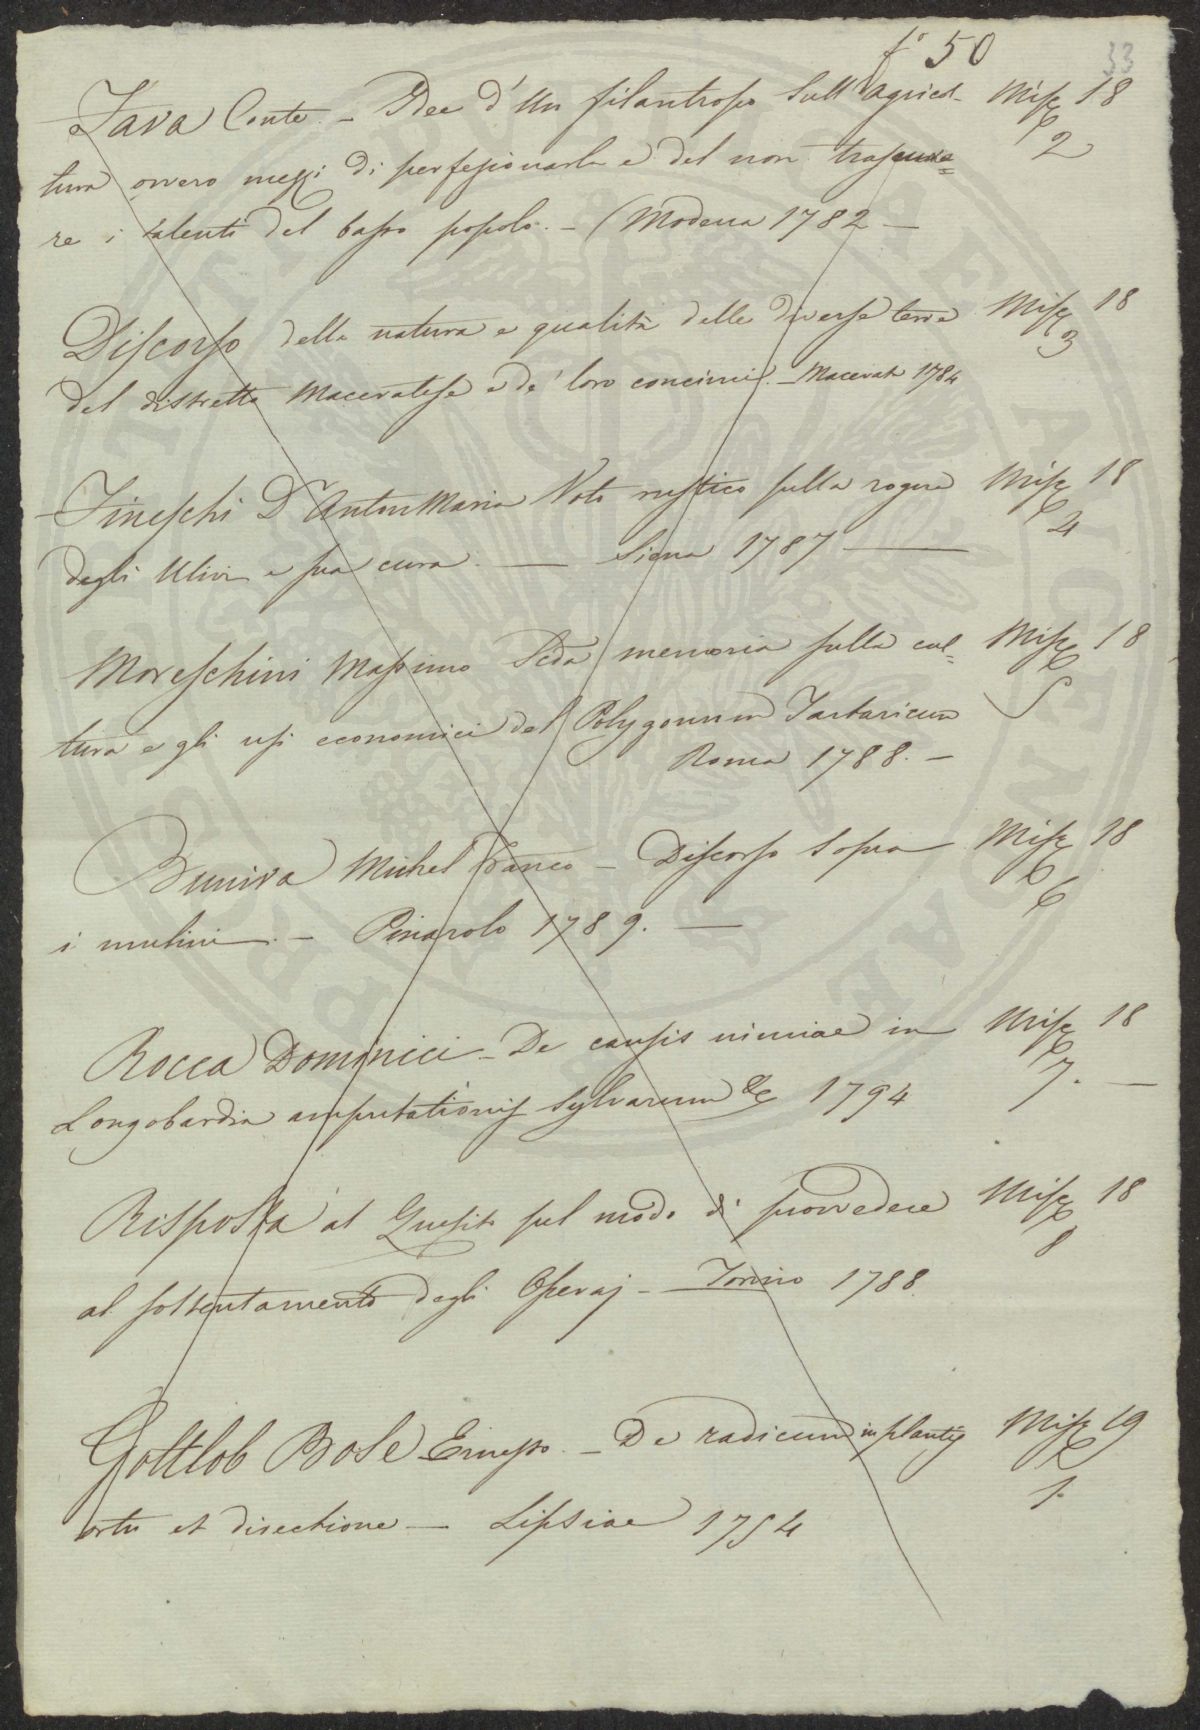 fo 50
33
Fava Conte. - Idee d'un filantropo sull'agricol- Misc 18
tura ovvero mezzi di perfezionarla e del non trascura= 2
re i talenti del basso popolo. - (Modena 1782 —
Discorso della natura e qualità delle diverse terre Misc 18
3
del distretto Maceratese e de' loro concimi. - Macerata 1784
Fineschi Dr Anton Maria Voto rustico sulla rogna Misc 18
4
degli Ulivi e sua cura. — Siena 1787 —
Moreschini Massimo Seda memoria sulla col= Misc 18
5
tura e gli usi economici del Polygonum Tartaricum
Roma 1788. -
Buniva Michel Franco - Discorso sopra Misc 18
6
i mulini. - Pinarolo 1789. —
Rocca Dominici - De causis nimiae in Misc 18
7. —
Longobardia amputationis sylvarum &c 1794
Risposta al Quesito sul modo di provvedere Misc 18
8
al sostentamento degli Operaj - Torino 1788
Gottlob Bose Ernesto. - De radicum in plantis Misc 19
1.
ortu et directione — Lipsiae 1754
PROSPERITATI PUBLICAE AUGENDAE